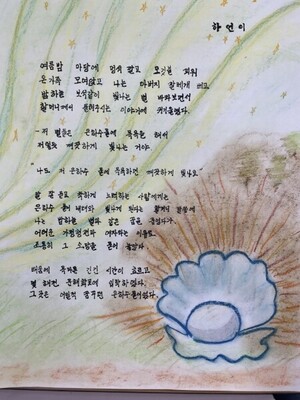 하연이
여름밤 마당에 멍석 깔고 모깃불 피워
온가족 모여앉고 나는 아버지 팔베개 베고
밤하늘 보석같이 빛나는 별 바라보면서
할머니께서 들려주시는 이야기에 귀기울였다.
- 저 별들은 은하수물에 목욕을 해서
저렇게 깨끗하게 빛나는 거야
"나도 저 은하수 물에 목욕하면 깨끗하게 빛나요"
말 잘 듣고 착하게 노력하는 사람에게는
은하수 물이 빛나게 된다는 할머니 말씀에
나는 밤하늘 별과 같은 꿈을 꾸었다.
어려운 가정형편과 여자라는 이유로
조용히 그 소망을 묻어 놓았다
마음에 묵겨둔 긴긴 시간이 흐르고
몇 해전 문해학교에 입학하였다.
그곳은 어릴적 꿈꾸던 은하수물이었다.